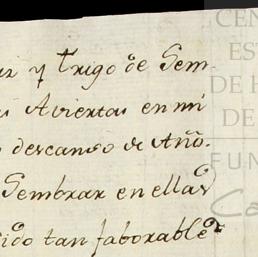 y trigo de Sem-
Abiertas en mi
descanso de Año.
Sembrar en ellas
ido tan faborables
CEN
ES
DE H
DE
FUN
Ca